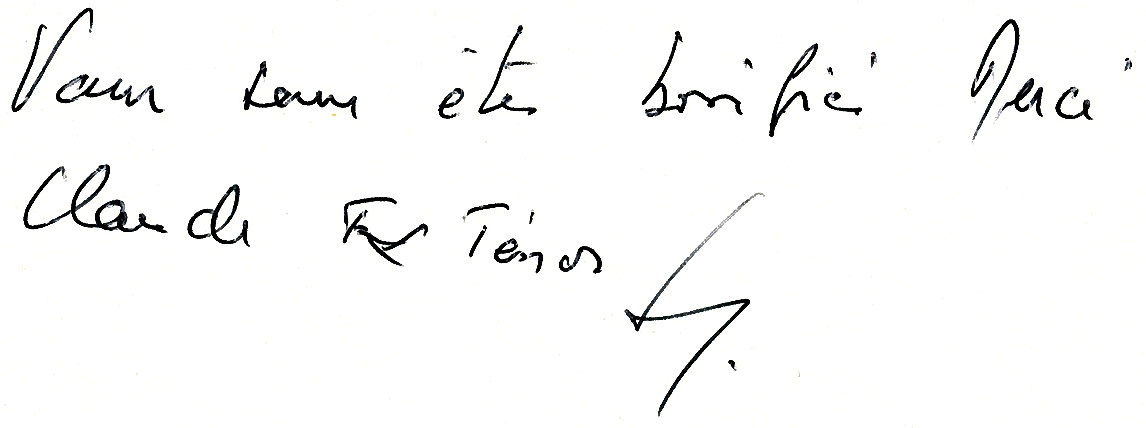 Vous vous êtes bonifié Merci
Claude Ténor